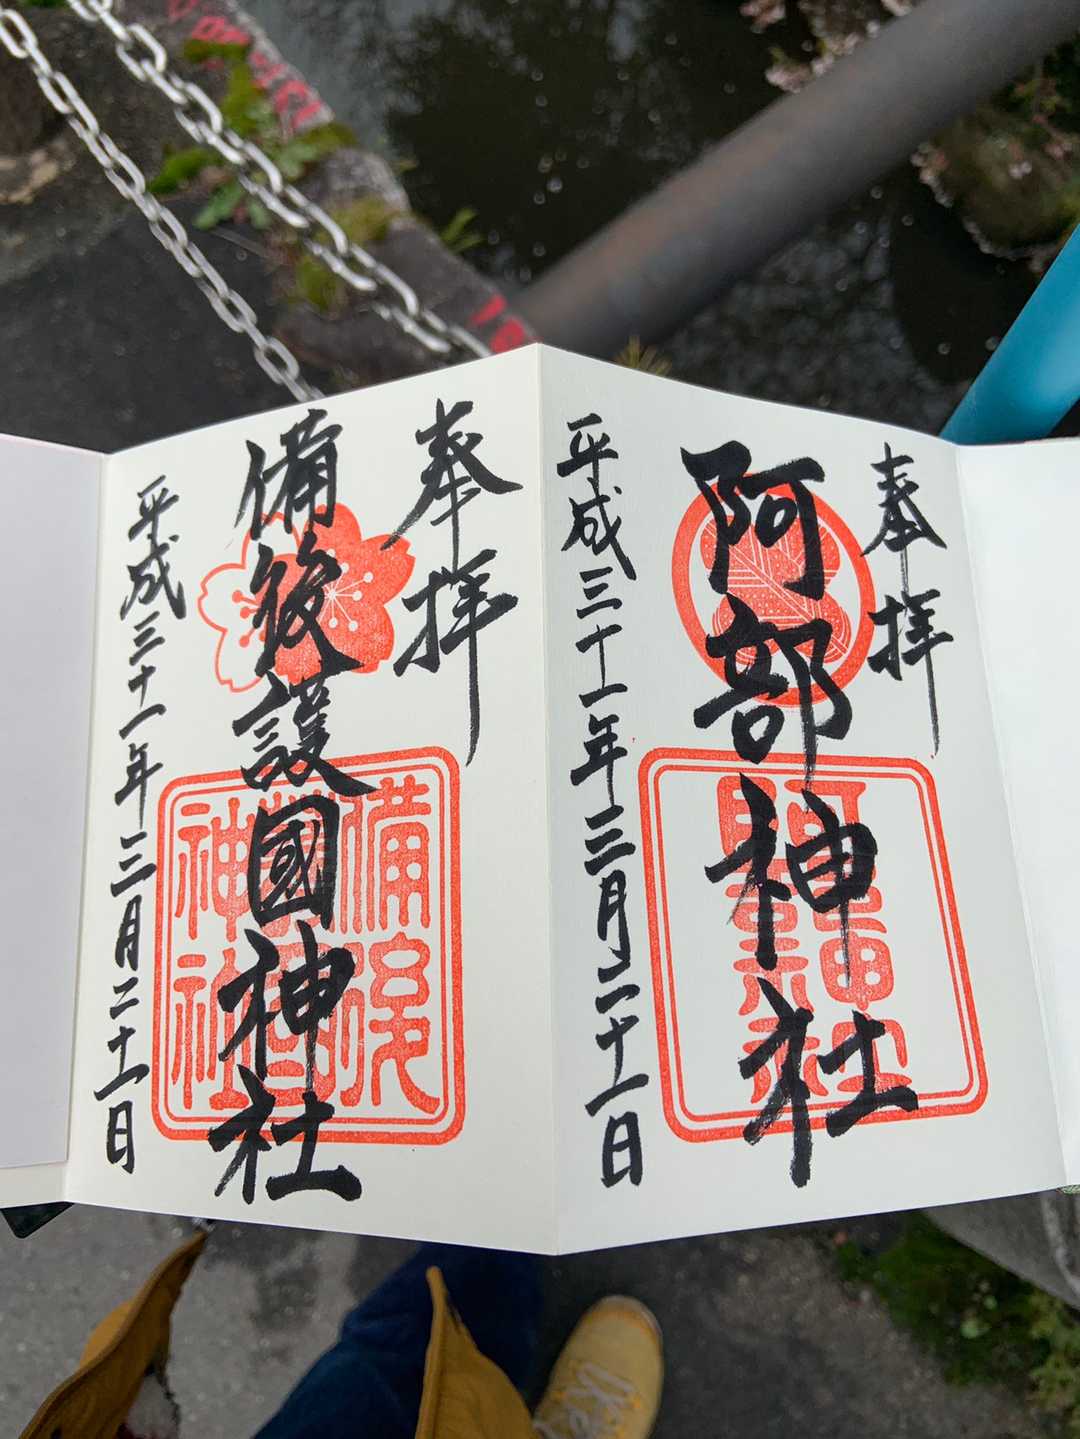 奉拝
阿部神社
平成三十一年三月二十一日
阿部神社
奉拝
備後護國神社
平成三十一年三月二十一日
備後護國神社